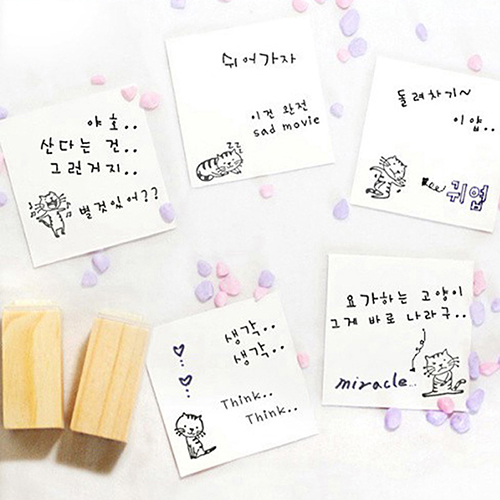 야호..
산다는 건..
그런거지..
별것있어??
쉬어가자
이건 완전
sad movie
돌려차기~
이얍..
귀엽
생각..
생각..
Think..
Think..
요가하는 고양이
그게 바로 나라구..
miracle...